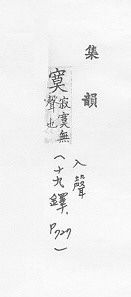 集韻
寞寂寞無
聲也
入聲
(十九鐸、P727)